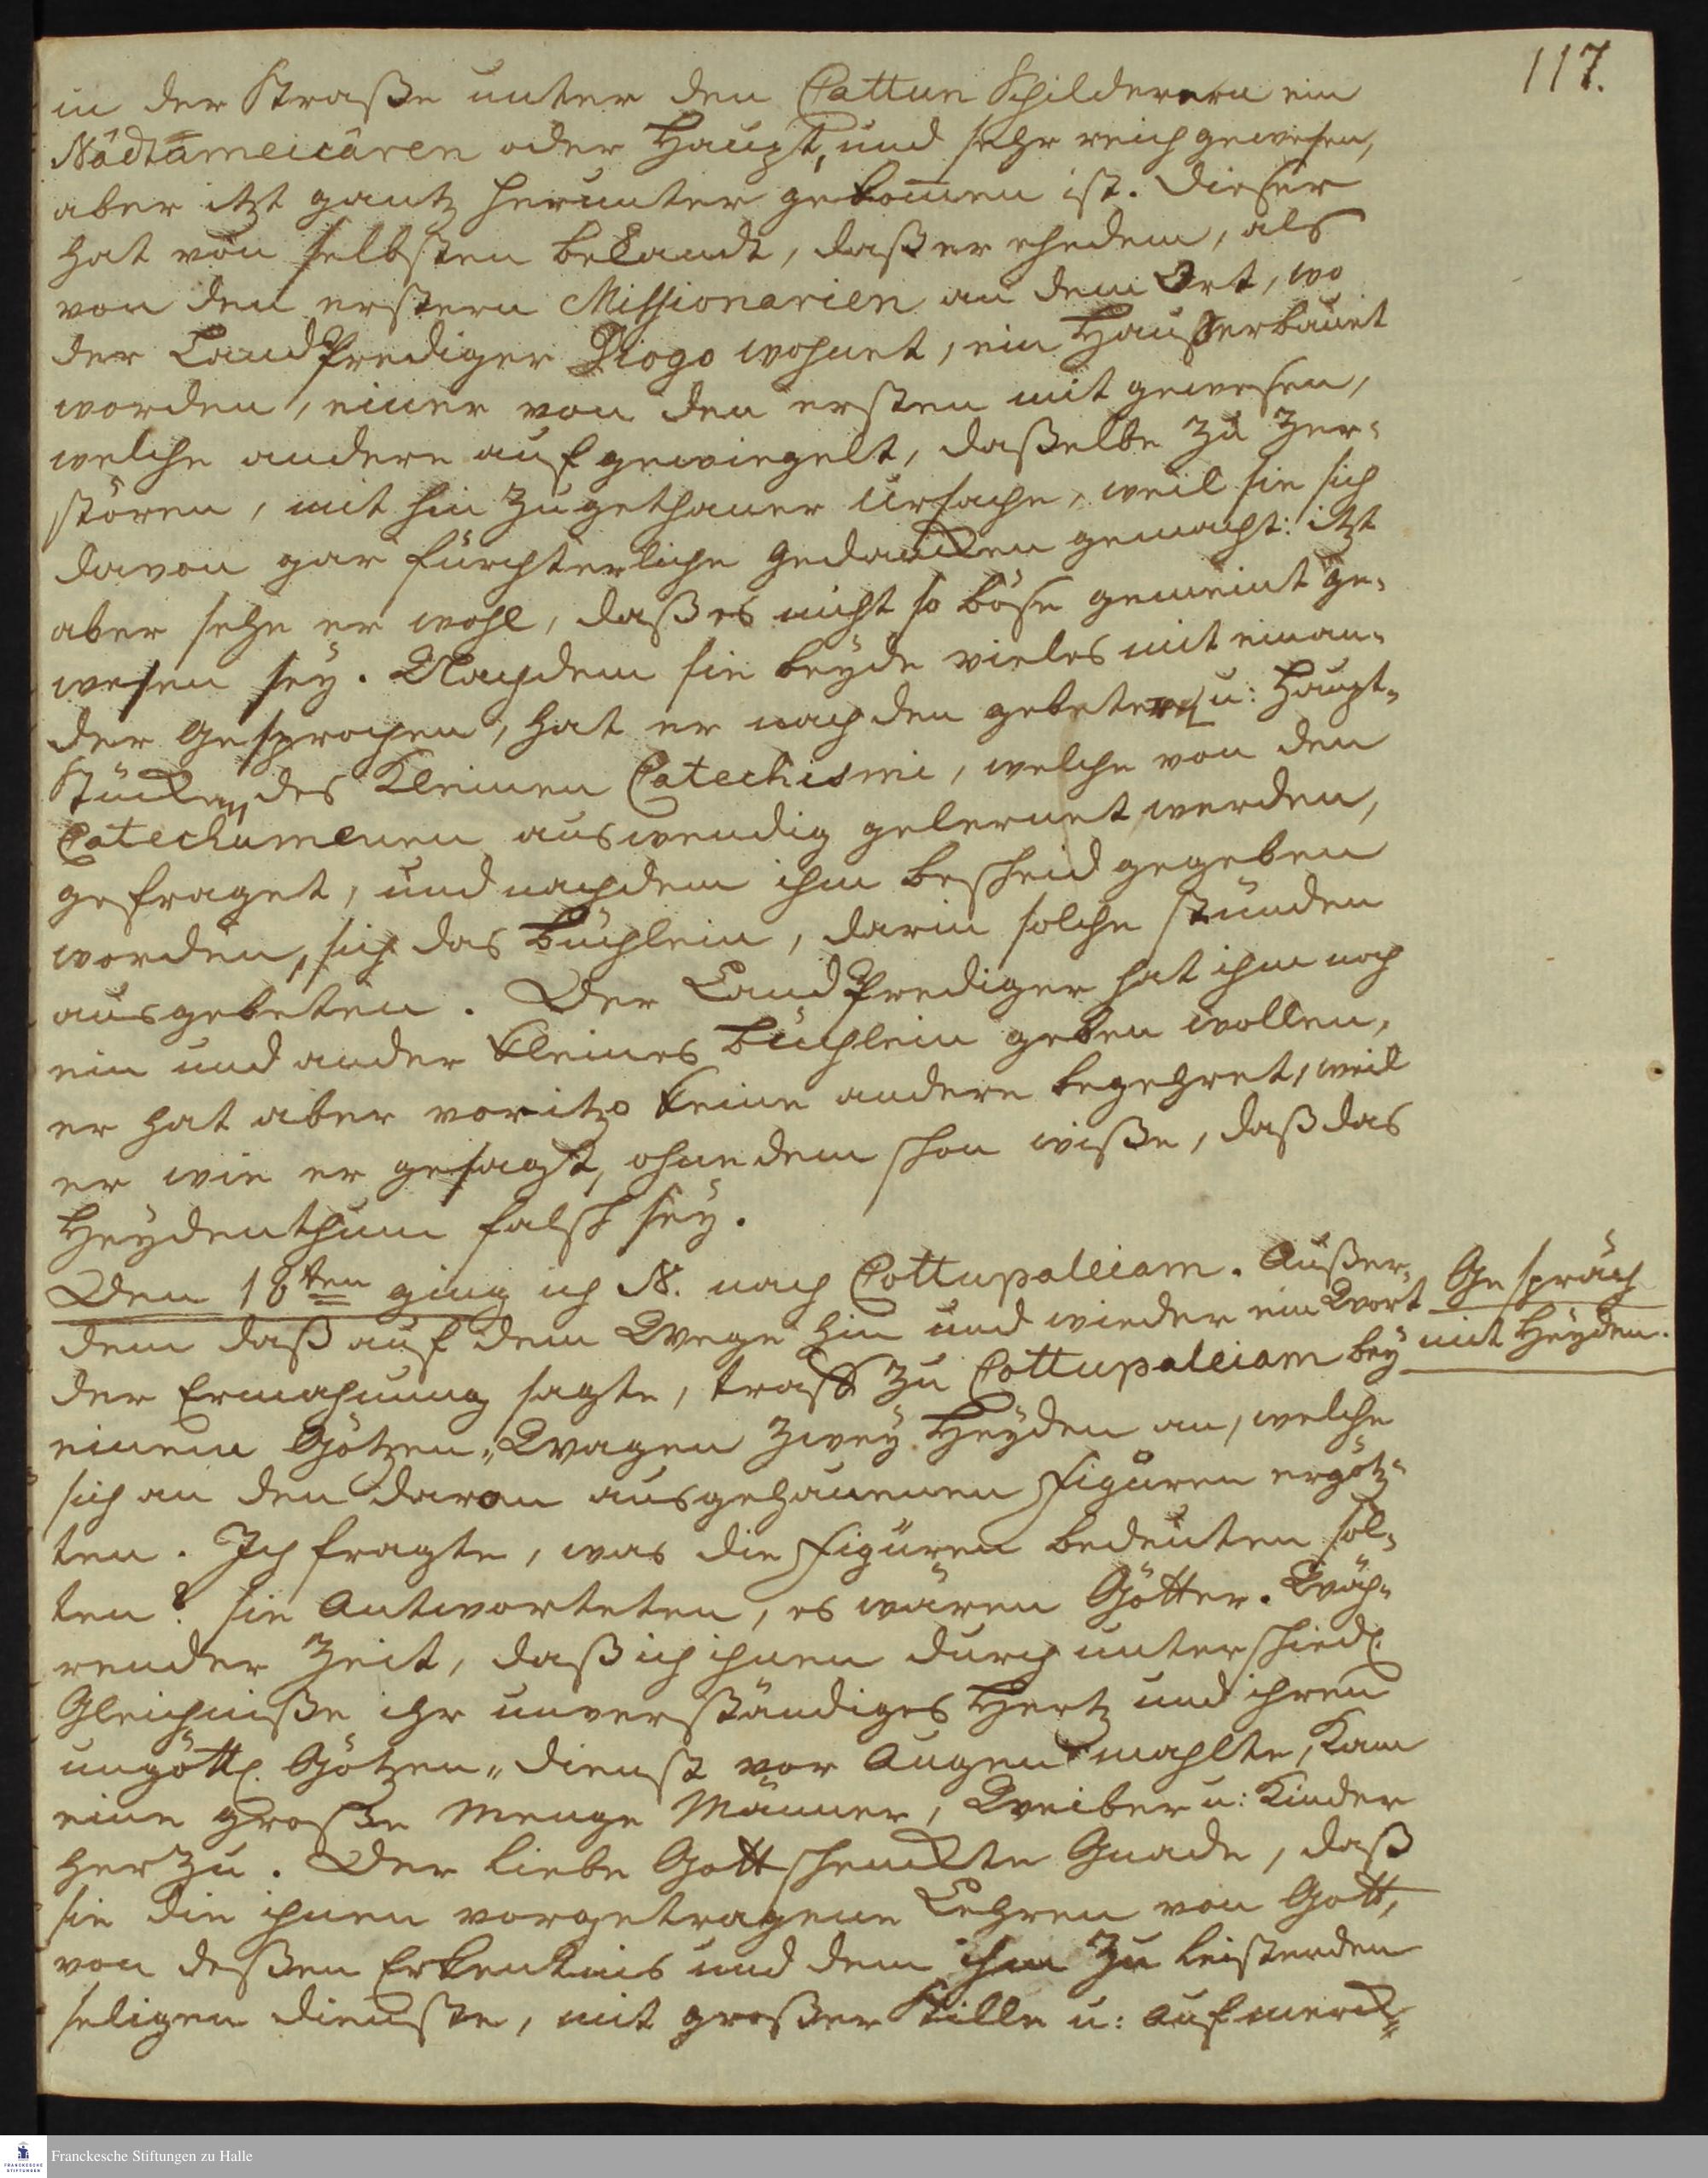 117.
in der Straße unter den Cattun Schilderern ein
Nâdtâmeicâren oder Haupt, und sehr reich gewesen,
aber itzt gantz herunter gekom̅en ist. Dieser
hat von selbsten bekandt, daß er ehedem, als
von den erstern Missionarien an dem Ort, wo
der LandPrediger Diogo wohnet, ein Hauß erbauet
worden, einer von den ersten mit gewesen,
welche andere aufgewiegelt, daßelbe zu zer-
stören, mit hinzugethaner Ursache, weil sie sich
davon gar fürchterliche Gedancken gemacht: itzt
aber sehe er wohl, daß es nicht so böse gemeint ge-
wesen sey. Nachdem sie beyde vieles mit einan-
der gesprochen, hat er nach den gebeten u: Haupt-
Stücken des Kleinen Catechismi, welche von den
Catechumenen auswendig gelernet werden,
gefraget, und nachdem ihm bescheid gegeben
worden, sich das Büchlein, darin solche stünden
ausgebeten. Der LandPrediger hat ihm noch
ein und ander kleines Büchlein geben wollen,
er hat aber voritzo keine andere begehret, weil
er wie er gesagt, ohnedem schon wiße, daß das
Heydenthum falsch sey.
Den 18ten ging ich N. nach Cottupaleiam. Außer-
dem daß auf dem Wege hin und wieder ein Wort
der Ermahnung sagte, traff zu Cottupaleiam bey
einem Götzen-Wagen zwey Heyden an, welche
sich an den daran ausgehauenen Figuren ergötz-
ten. Ich fragte, was die Figuren bedeuten sol-
ten? sie Antworteten, es wären Götter. Wäh-
render Zeit, daß ich ihnen durch unterschiedl.
Gleichniße ihr unverständiges Hertz und ihren
ungöttl. Götzen-dienst vor Augen mahlte, kam
eine große Menge Männer, Weiber u: Kinder
herzu. Der liebe Gott schenckte Gnade, daß
sie die ihnen vorgetragene Lehren von Gott,
von deßen Erkentnis und dem ihm zu leistenden
seligen dienste, mit großer Stille u: Aufmerck-
Gespräch
mit Heyden.
Franckesche Stiftungen zu Halle